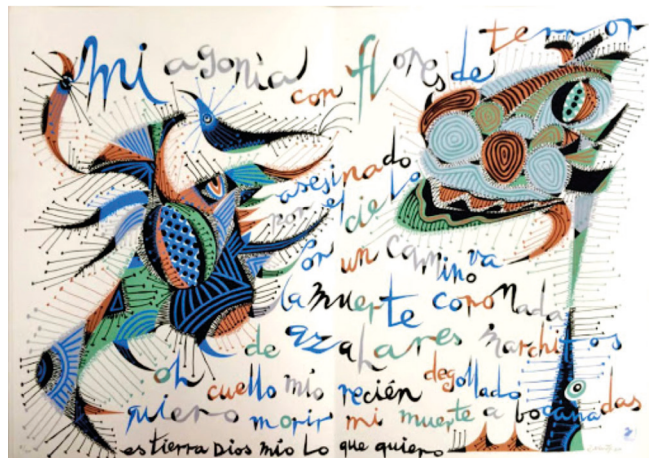 mi agonía con flores de temor
asesinado
por el cielo
Por un camino va
la muerte coronada
de azahares marchitos
oh cuello mío recién degollado
quiero morir mi muerte a bocanadas
es tierra Dios mío lo que quiero